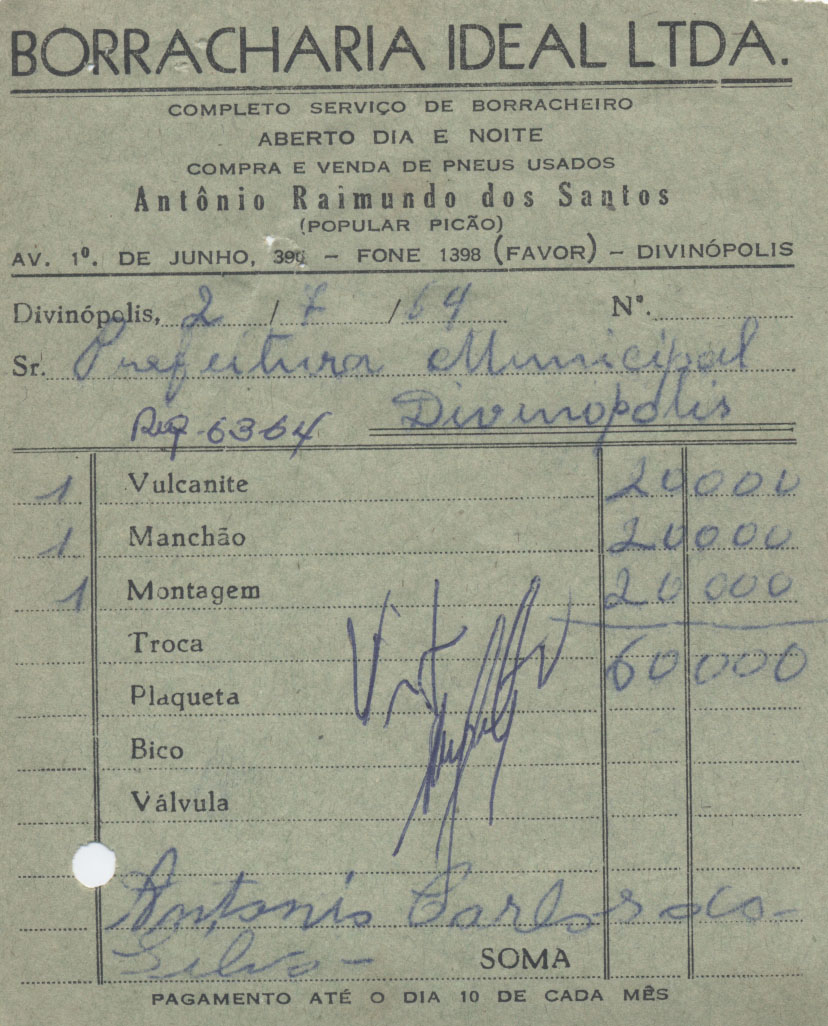 BORRACHARIA IDEAL LTDA.
COMPLETO SERVIÇO DE BORRACHEIRO
ABERTO DIA E NOITE
COMPRA E VENDA DE PNEUS USADOS
Antônio Raimundo dos Santos
(POPULAR PICÃO)
AV. 1º. DE JUNHO, – FONE 1398 (FAVOR) – DIVINÓPOLIS
Divinópolis, 2 / 7 / 64 Nº.
Sr. Prefeitura Municipal
Req 6364 Divinopolis
1 Vulcanite 20 000
1 Manchão 20 000
1 Montagem 20 000
Troca 60 000
Plaqueta
Bico
Válvula
Antonio Carlos da
Silva – SOMA
PAGAMENTO ATÉ O DIA 10 DE CADA MÊS